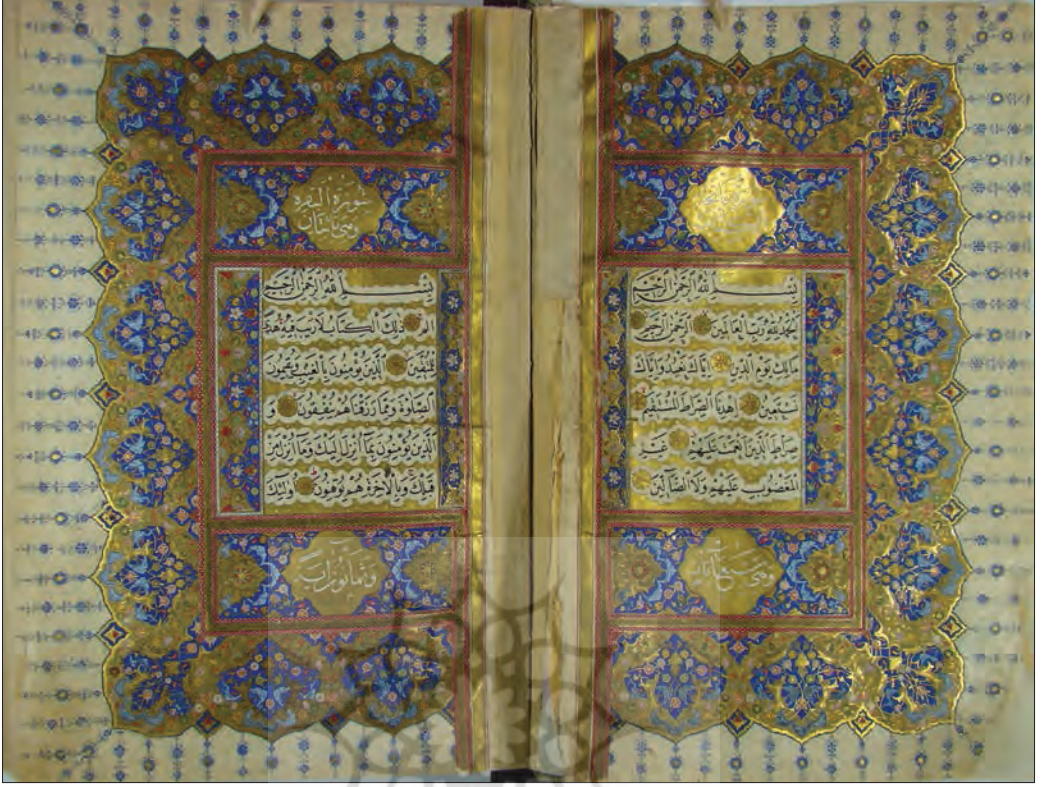 بِسْمِ اللهِ الرَّحْمٰنِ الرَّحِيمِ
الْحَمْدُ لِلّٰهِ رَبِّ الْعَالَمِينَ الرَّحْمٰنِ الرَّحِيمِ
مَالِكِ يَوْمِ الدِّينِ اِيَّاكَ نَعْبُدُ وَاِيَّاكَ
نَسْتَعِينُ اِهْدِنَا الصِّرَاطَ الْمُسْتَقِيمَ
صِرَاطَ الَّذِينَ اَنْعَمْتَ عَلَيْهِمْ غَيْرِ
الْمَغْضُوبِ عَلَيْهِمْ وَلَا الضَّالِّينَ
وهي سبع آيات
سورة البقرة
وهي مائتان
بِسْمِ اللهِ الرَّحْمٰنِ الرَّحِيمِ
الم ذٰلِكَ الْكِتَابُ لَا رَيْبَ فِيهِ هُدًى
لِلْمُتَّقِينَ الَّذِينَ يُؤْمِنُونَ بِالْغَيْبِ وَيُقِيمُونَ
الصَّلٰوةَ وَمِمَّا رَزَقْنَاهُمْ يُنْفِقُونَ وَ
الَّذِينَ يُؤْمِنُونَ بِمَا اُنْزِلَ اِلَيْكَ وَمَا اُنْزِلَ مِنْ
قَبْلِكَ وَبِالْاٰخِرَةِ هُمْ يُوقِنُونَ اُولٰئِكَ
وثمانون